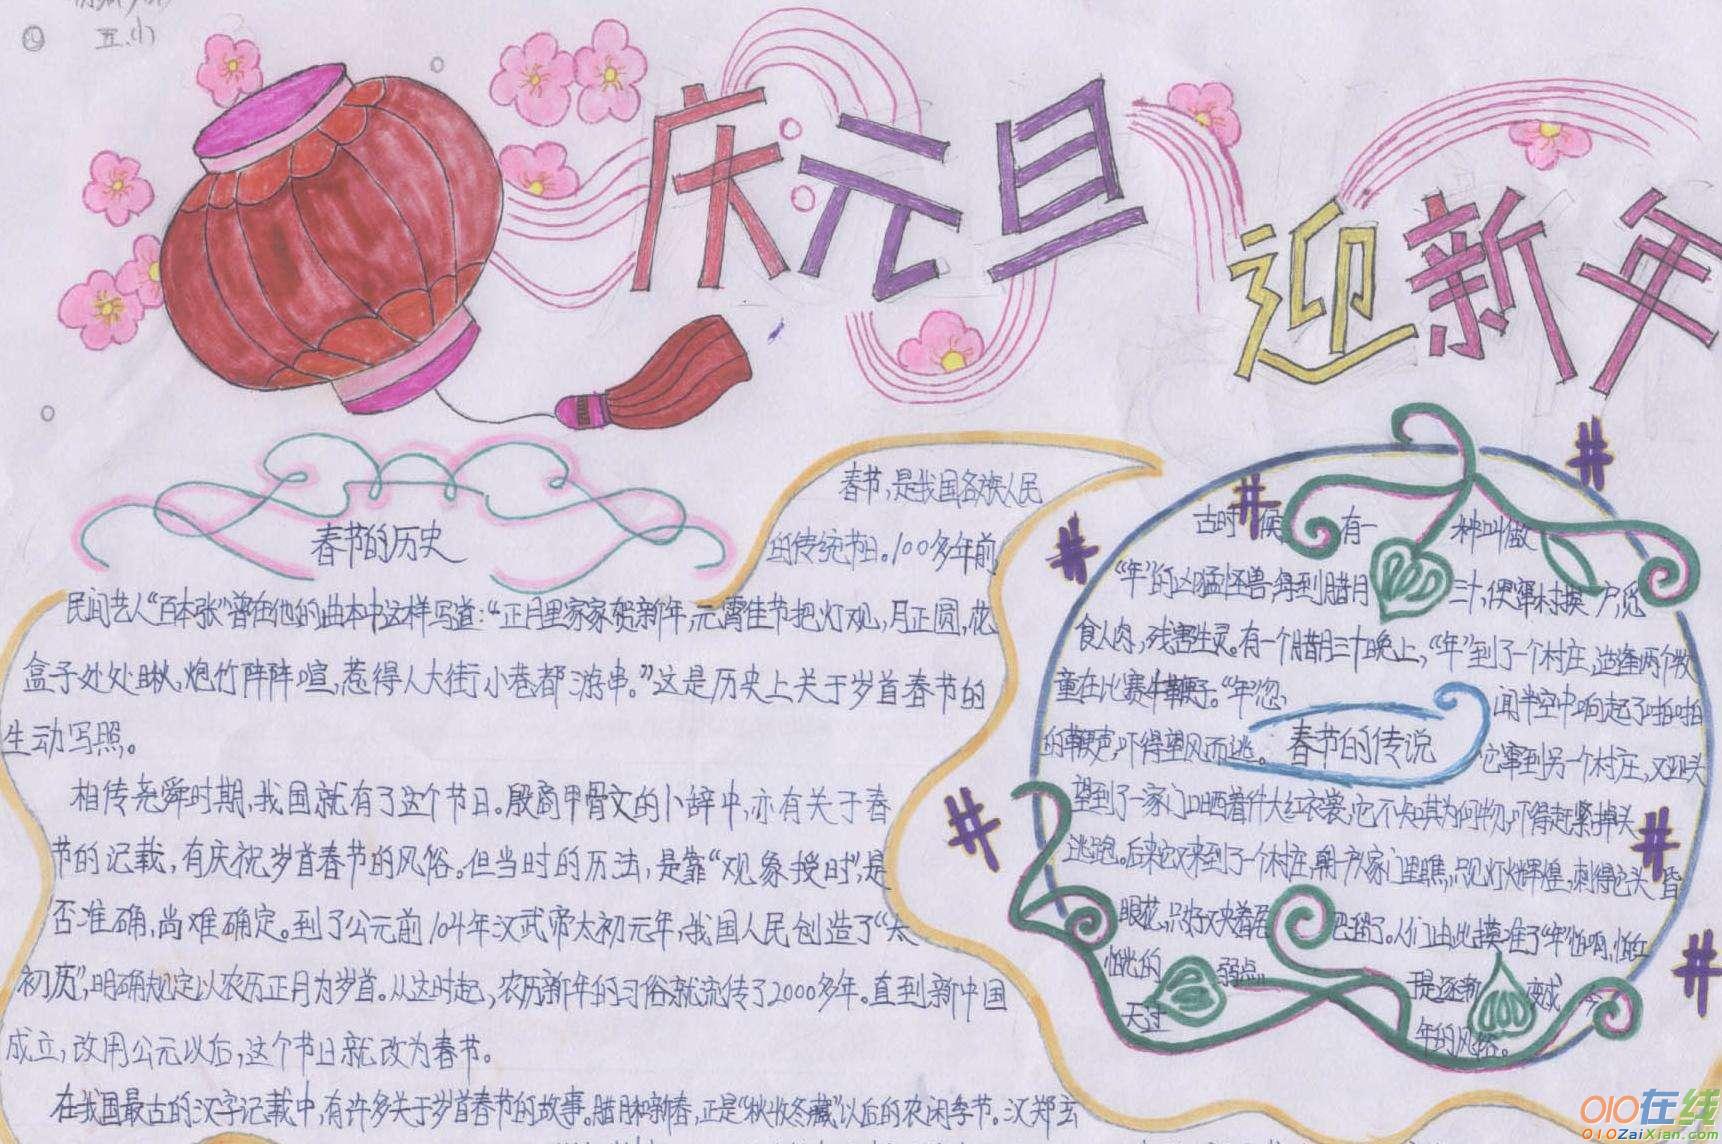 五.小
庆元旦
迎新年
春节的历史
春节,是我国各族人民
的传统节日。100多年前,
民间艺人“百本张”曾在他的曲本中这样写道:“正月里家家贺新年,元宵佳节把灯观,月正圆,花
盒子处处瞅,炮竹阵阵喧,惹得人大街小巷都游串。”这是历史上关于岁首春节的
生动写照。
相传尧舜时期,我国就有了这个节日。殷商甲骨文的卜辞中,亦有关于春
节的记载,有庆祝岁首春节的风俗。但当时的历法,是靠“观象授时”,是
否准确,尚难确定。到了公元前104年汉武帝太初元年,我国人民创造了“太
初历”,明确规定以农历正月为岁首。从这时起,农历新年的习俗就流传了2000多年。直到新中国
成立,改用公元以后,这个节日就改为春节。
在我国最古的汉字记载中,有许多关于岁首春节的故事。腊月和新春,正是“秋收冬藏”以后的农闲季节。汉郑玄
古时候有一种叫做
“年”的凶猛怪兽,每到腊月三十,便窜村挨户,觅
食人肉,残害生灵。有一个腊月三十晚上,“年”到了一个村庄,适逢两个牧
童在比赛牛鞭子。“年”忽闻半空中响起了啪啪
的鞭声,吓得望风而逃。它窜到另一个村庄,又迎头
春节的传说
望到了一家门口晒着件大红衣裳,它不知其为何物,吓得赶紧掉头
逃跑。后来它又来到了一个村庄,朝一户人家门里瞧,只见灯火辉煌,刺得它头昏
眼花,只好又夹着尾巴溜了。人们由此摸准了“年”怕响,怕红
怕光的弱点,
天过年的风俗。
010在线
010ZaiXian.com